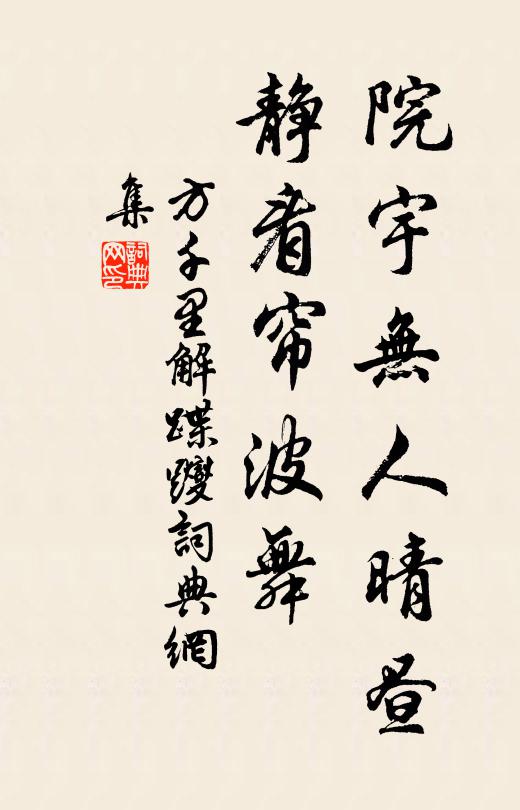 院宇無人晴昼
静看帘波舞
方千里解蹀躞詞典網
集
詞典網印